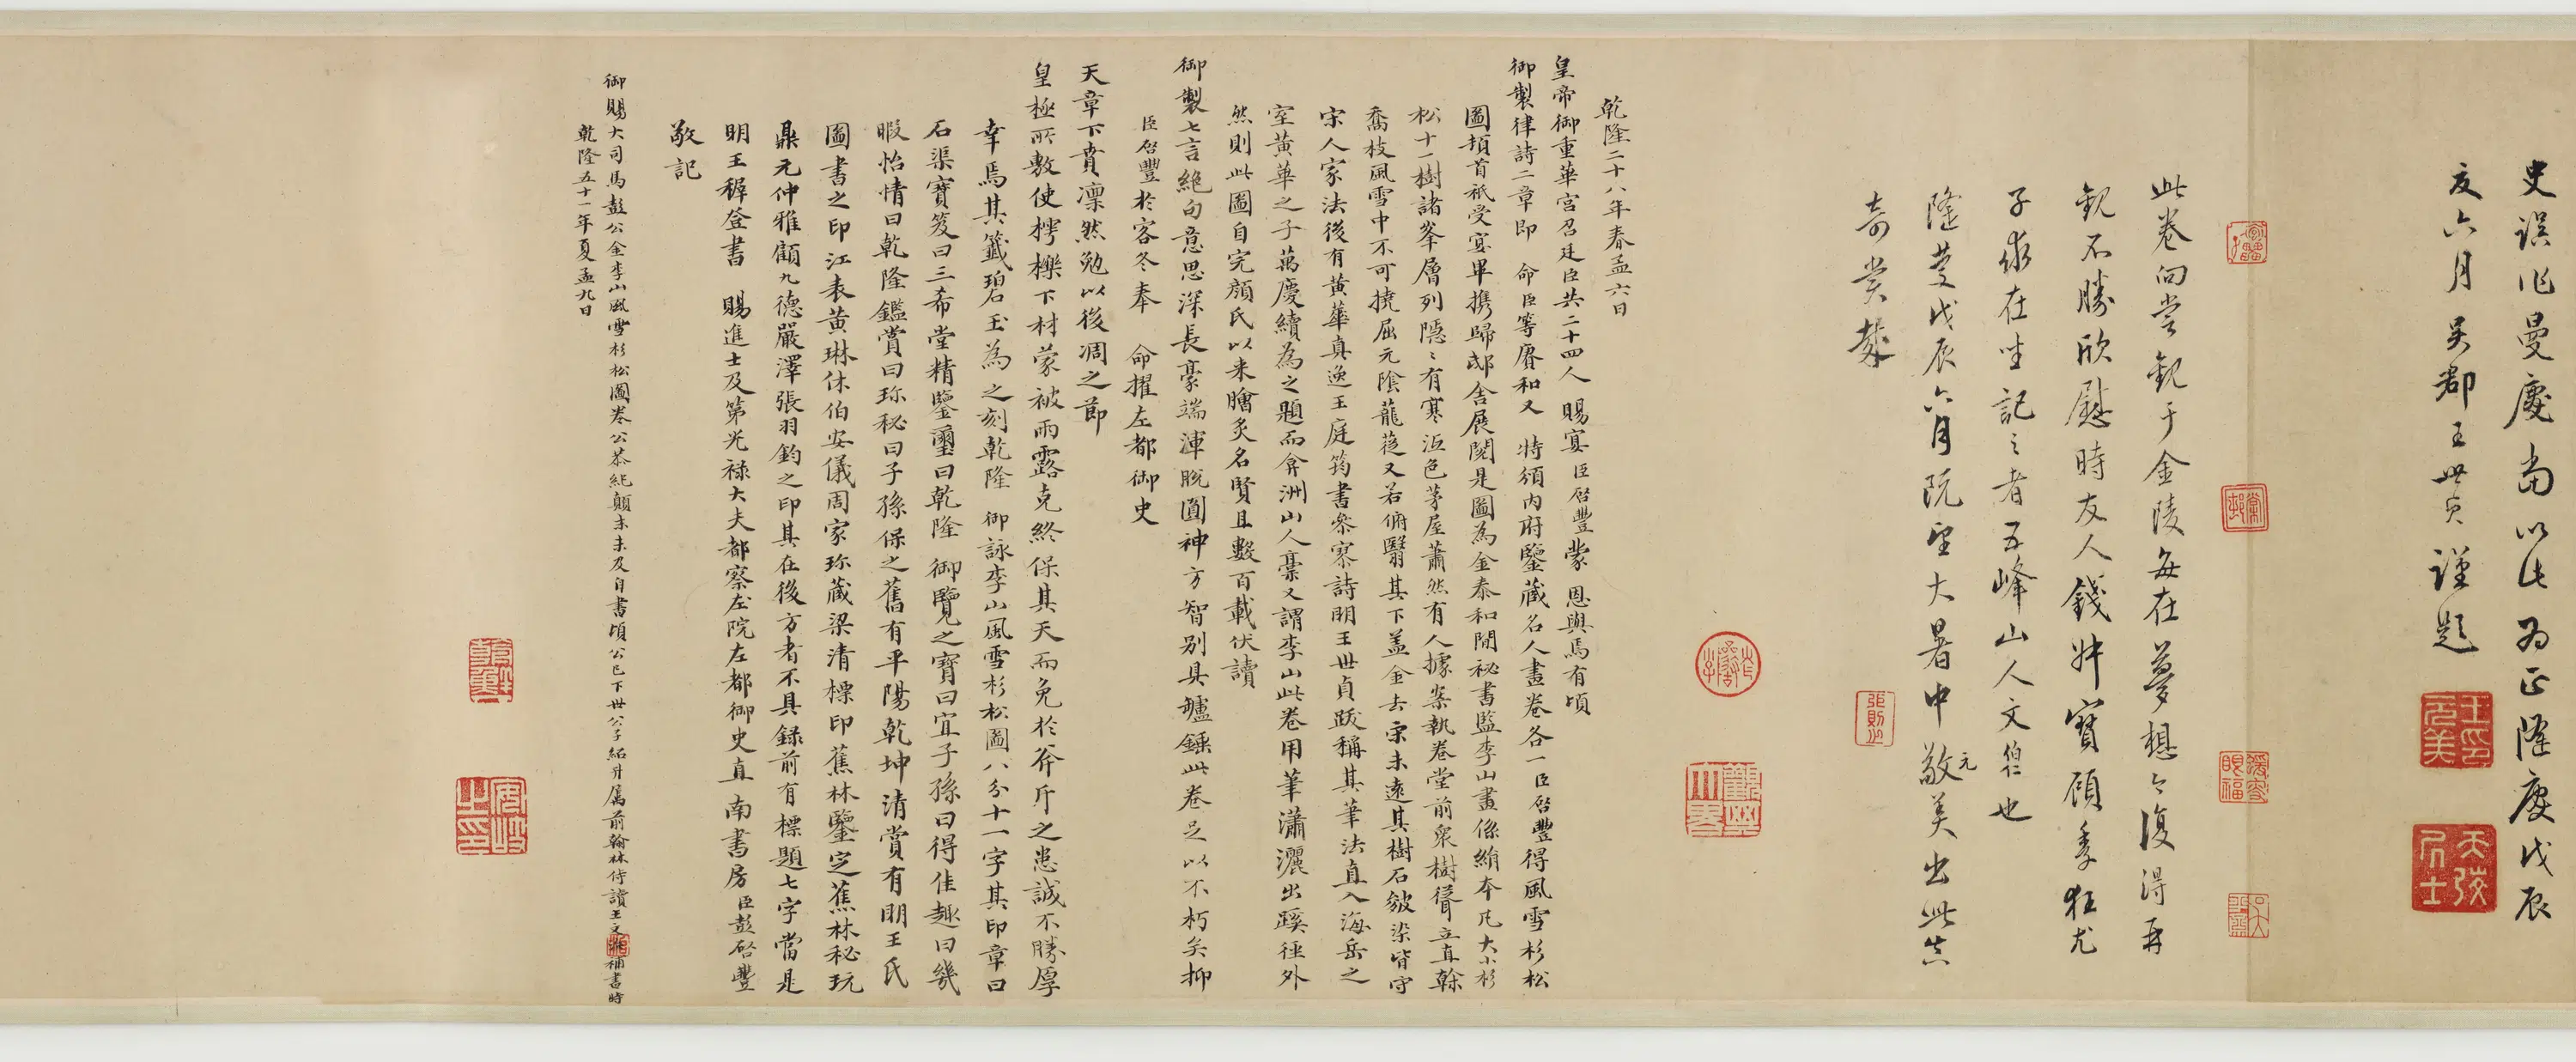 史誤作曼慶當以此為正隆慶戊辰
夏六月吳郡王世貞謹題
王氏元美
天弢居士
此卷向嘗觀于金陵每在夢想今復得再
觀不勝欣慰時友人錢叔寶顧季狂尤
子求在坐記之者五峰山人文伯仁也
隆慶戊辰六月既望大暑中敬美出此共
元
奇賞輦
張則之
乾隆二十八年春孟六日
皇帝御重華宮召廷臣共二十四人 賜宴臣啓豐蒙 恩與焉有頃
御製律詩二章即 命臣等賡和又 特頒內府鑒藏名人畫卷各一臣啓豐得風雪杉松
圖頓首祇受宴畢携歸邸舍展閱是圖為金泰和間祕書監李山畫係絹本凡大小杉
松十一樹諸峯層列隱々有寒沍色茅屋蕭然有人據案執卷堂前衆樹聳立直榦
喬枝風雪中不可撓屈元陰蘢蓯又若俯翳其下盖金去宋未遠其樹石皴染皆守
宋人家法後有黃華真逸王庭筠書參寥詩明王世貞跋稱其筆法直入海岳之
室黃華之子萬慶續為之題而弇洲山人藁又謂李山此卷用筆瀟灑出蹊徑外
然則此圖自完顏氏以來膾炙名賢且數百載伏讀
御製七言絶句意思深長豪端渾脫圓神方智別具罏錘此卷足以不朽矣抑
臣啓豐於客冬奉 命擢左都御史
天章下賁凜然勉以後凋之節
皇極所敷使樗櫟下材蒙被雨露克終保其天而免於斧斤之患誠不勝厚
幸焉其籤碧玉為之刻乾隆 御詠李山風雪杉松圖八分十一字其印章曰
石渠寶笈曰三希堂精鑒璽曰乾隆 御覽之寶曰宜子孫曰得佳趣曰幾
暇怡情曰乾隆鑑賞曰珎秘曰子孫保之舊有平陽乾坤清賞有明王氏
圖書之印江表黃琳休伯安儀周家珎藏梁清標印蕉林鑒定蕉林秘玩
鼎元仲雅顧九德嚴澤張羽鈞之印其在後方者不具録前有標題七字當是
明王穉登書 賜進士及第光祿大夫都察左院左都御史直 南書房臣彭啓豐
敬記
御賜大司馬彭公金李山風雪杉松圖卷公恭紀顛末未及自書頃公已下世公子紹升屬前翰林侍讀王文治補書時
乾隆五十一年夏孟九日
安岐之印